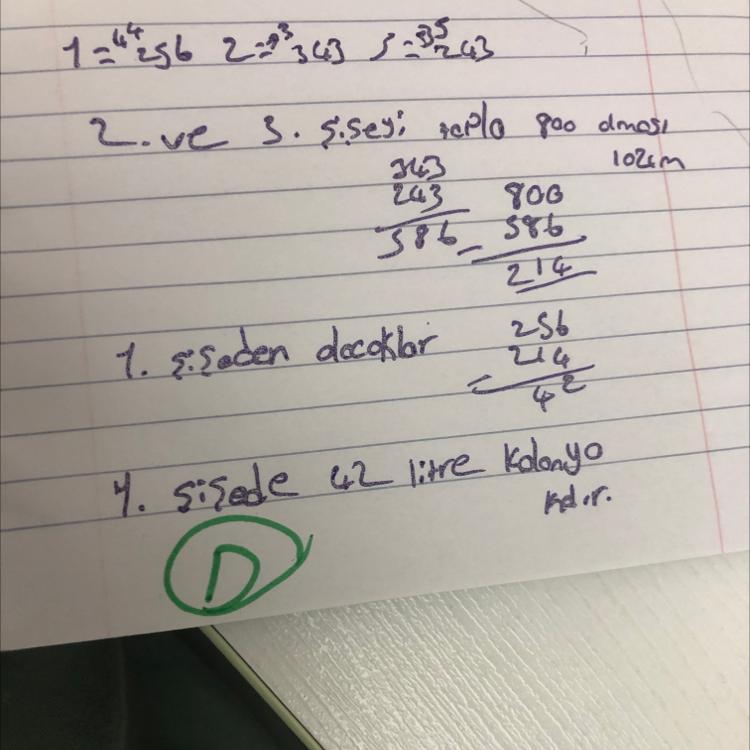 1 = 4⁴ 256 2 = 7³ 343 3 = 3⁵ 243
2. ve 3. şişeyi topla 800 olması
için
343
243
586
800
- 586
214
1. şişeden alacaklar
256
- 214
42
1. şişede 42 litre kolonya
kalır.
D